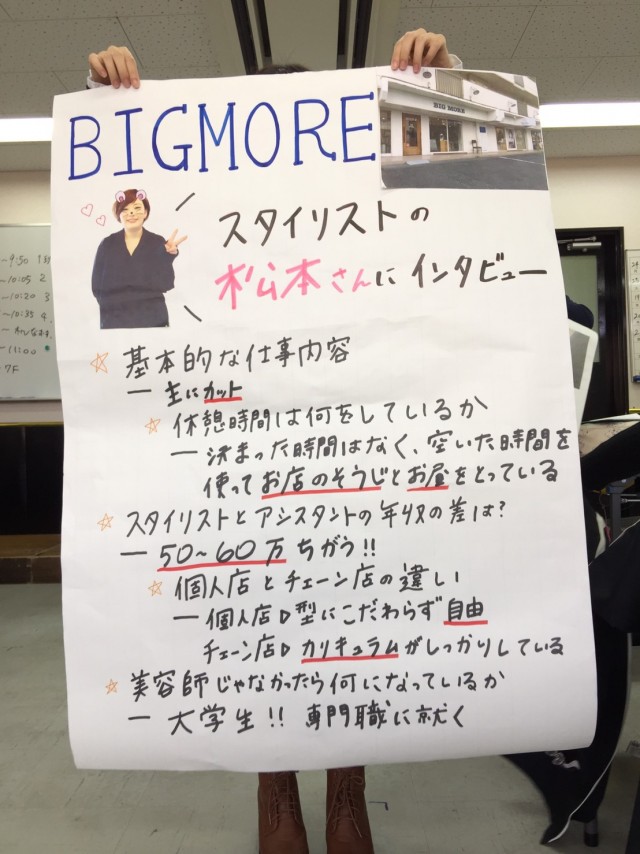 BIGMORE
BIG MORE
スタイリストの
松本さんにインタビュー
☆ 基本的な仕事内容
ー 主にカット
☆ 休憩時間は何をしているか
ー 決まった時間はなく、空いた時間を
使ってお店のそうじとお昼をとっている
☆ スタイリストとアシスタントの年収の差は?
ー 50~60万ちがう!!
☆ 個人店とチェーン店の違い
ー 個人店▷型にこだわらず自由
チェーン店▷カリキュラムがしっかりしている
☆ 美容師じゃなかったら何になっているか
ー 大学生!! 専門職に就く
~9:50
~10:05 2
~10:20 3
~10:35 4
~11:00
7F